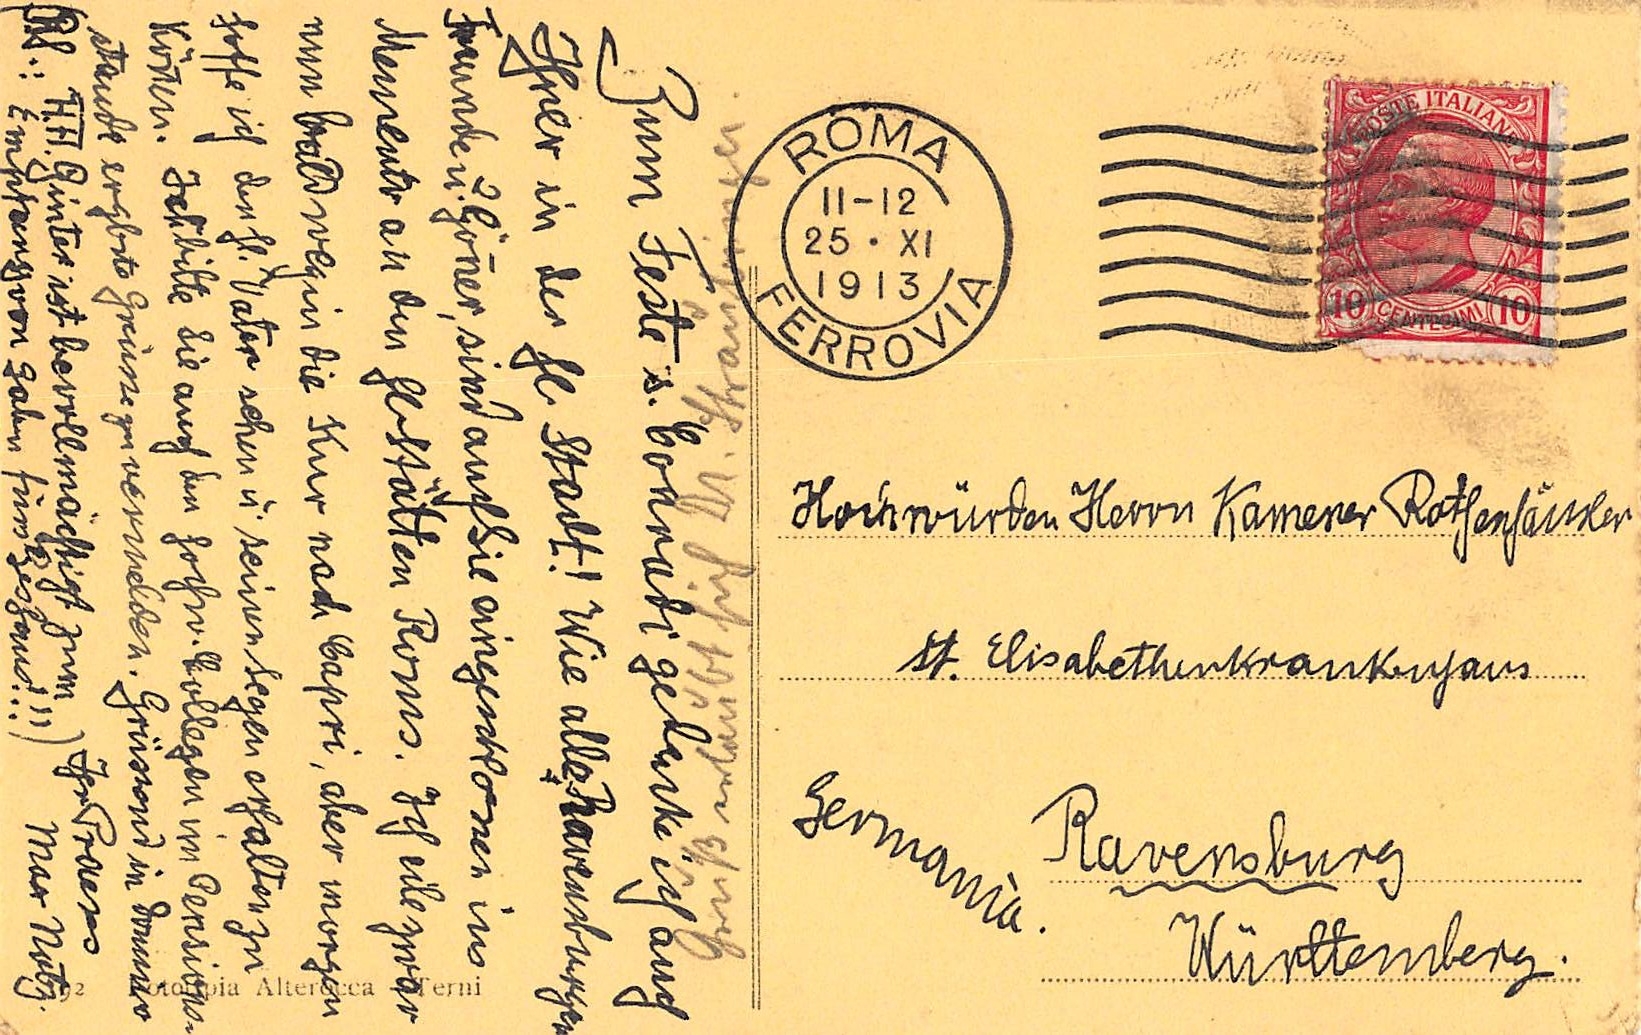 Zum Feste s. Conradi gedenke ich auch
Ihrer in der hl. Stadt! Wie alle Ravensburger
Freunde u. Gönner, sind auch Sie eingeschlossen ins
Memento an den hl. Stätten Roms. Ich eile zwar
nun bald weg in die Kur nach Capri, aber morgen
hoffe ich den hl. Vater sehen u. seinen Segen erhalten zu
können. Ich bitte Sie auch den hochw. Kollegen im Pensions-
stande ergebste Grüsse zu vermelden. Grüssend in domino
Ihr Praeses
Max
(Bl.: H.H. Ginter ist bevollmächtigt zum
Empfang von Gaben fürs Geshaus!!!)
ROMA
FERROVIA
11-12
25 · XI
1913
POSTE ITALIANE
10 CENTESIMI 10
Hochwürden Herrn Kamerer Rothenhäusler
St. Elisabethenkrankenhaus
Germania.
Ravensburg
Württemberg.
Fototipia Alterocca - Terni